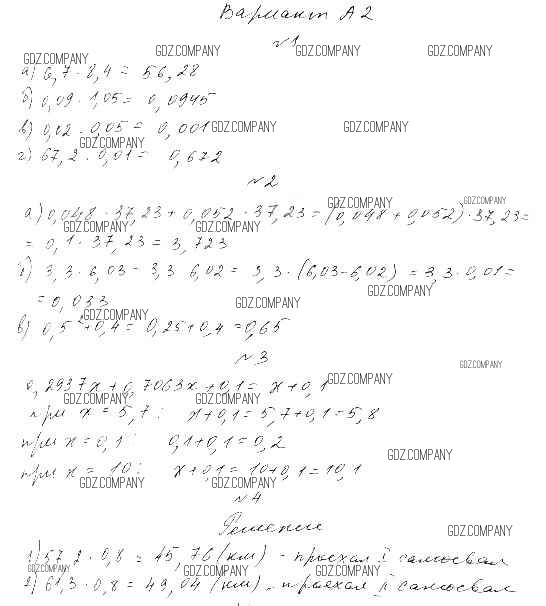 Вариант А2
№1
GDZ.COMPANY GDZ.COMPANY GDZ.COMPANY GDZ.COMPANY
а) 6,7 · 8,4 = 56,28
б) 0,09 · 1,05 = 0,0945
в) 0,02 · 0,05 = 0,001 GDZ.COMPANY GDZ.COMPANY
GDZ.COMPANY
г) 67,2 · 0,01 = 0,672
№2
GDZ.COMPANY GDZ.COMPANY
а) 0,048 · 37,23 + 0,052 · 37,23 = (0,048 + 0,052) · 37,23 =
GDZ.COMPANY GDZ.COMPANY
= 0,1 · 37,23 = 3,723
б) 3,3 · 6,03 - 3,3 · 6,02 = 3,3 · (6,03 - 6,02) = 3,3 · 0,01 =
GDZ.COMPANY
= 0,033 GDZ.COMPANY
GDZ.COMPANY
в) 0,5² + 0,4 = 0,25 + 0,4 = 0,65
№3
GDZ.COMPANY
0,2937x + 0,7063x + 0,1 = x + 0,1 GDZ.COMPANY
GDZ.COMPANY GDZ.COMPANY
при x = 5,7: x + 0,1 = 5,7 + 0,1 = 5,8
при x = 0,1: 0,1 + 0,1 = 0,2
GDZ.COMPANY
при x = 10: x + 0,1 = 10 + 0,1 = 10,1
GDZ.COMPANY GDZ.COMPANY
№4
Решение
GDZ.COMPANY
1) 57,2 · 0,8 = 45,76 (км) - проехал I самосвал
GDZ.COMPANY GDZ.COMPANY GDZ.COMPANY
2) 61,3 · 0,8 = 49,04 (км) - проехал II самосвал